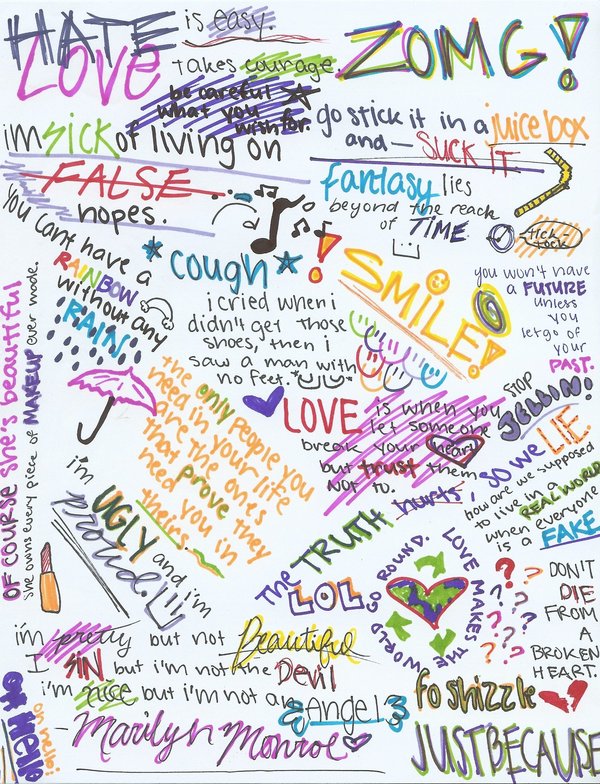 HATE is easy.
LOVE takes courage.
ZOMG!
be careful
what you
wish for.
go stick it in a juice box
and — SUCK IT
im SICK of living on
FALSE
hopes.
fantasy lies
beyond the reach
of TIME
tick-
tock
you cant have a
RAINBOW
without any
RAIN.
*cough*!
i cried when i
didn't get those
shoes, then i
saw a man with
no feet.
SMILE!
you won't have
a FUTURE
unless
you
let go of
your
PAST.
OF COURSE she's beautiful
she owns every piece of MAKEUP ever made.
the only people you
need in your life
are the ones
that prove they
need you in
theirs.
LOVE is when you
let someone
break your heart
but trust them
NOT to.
STOP
JELLIN!
i'm
UGLY and i'm
proud.
THE TRUTH hurts, so we LIE.
how are we supposed
to live in a
REAL WORLD
when everyone
is a FAKE
LOL
LOVE MAKES THE WORLD GO ROUND.
? ? ? ? ? ? ? ?
DON'T
DIE
FROM
A
BROKEN
HEART.
i'm pretty but not Beautiful
I SIN but i'm not the Devil
i'm nice but i'm not an Angel
- Marilyn Monroe
oh hello
oh hello!
fo shizzle
JUST BECAUSE